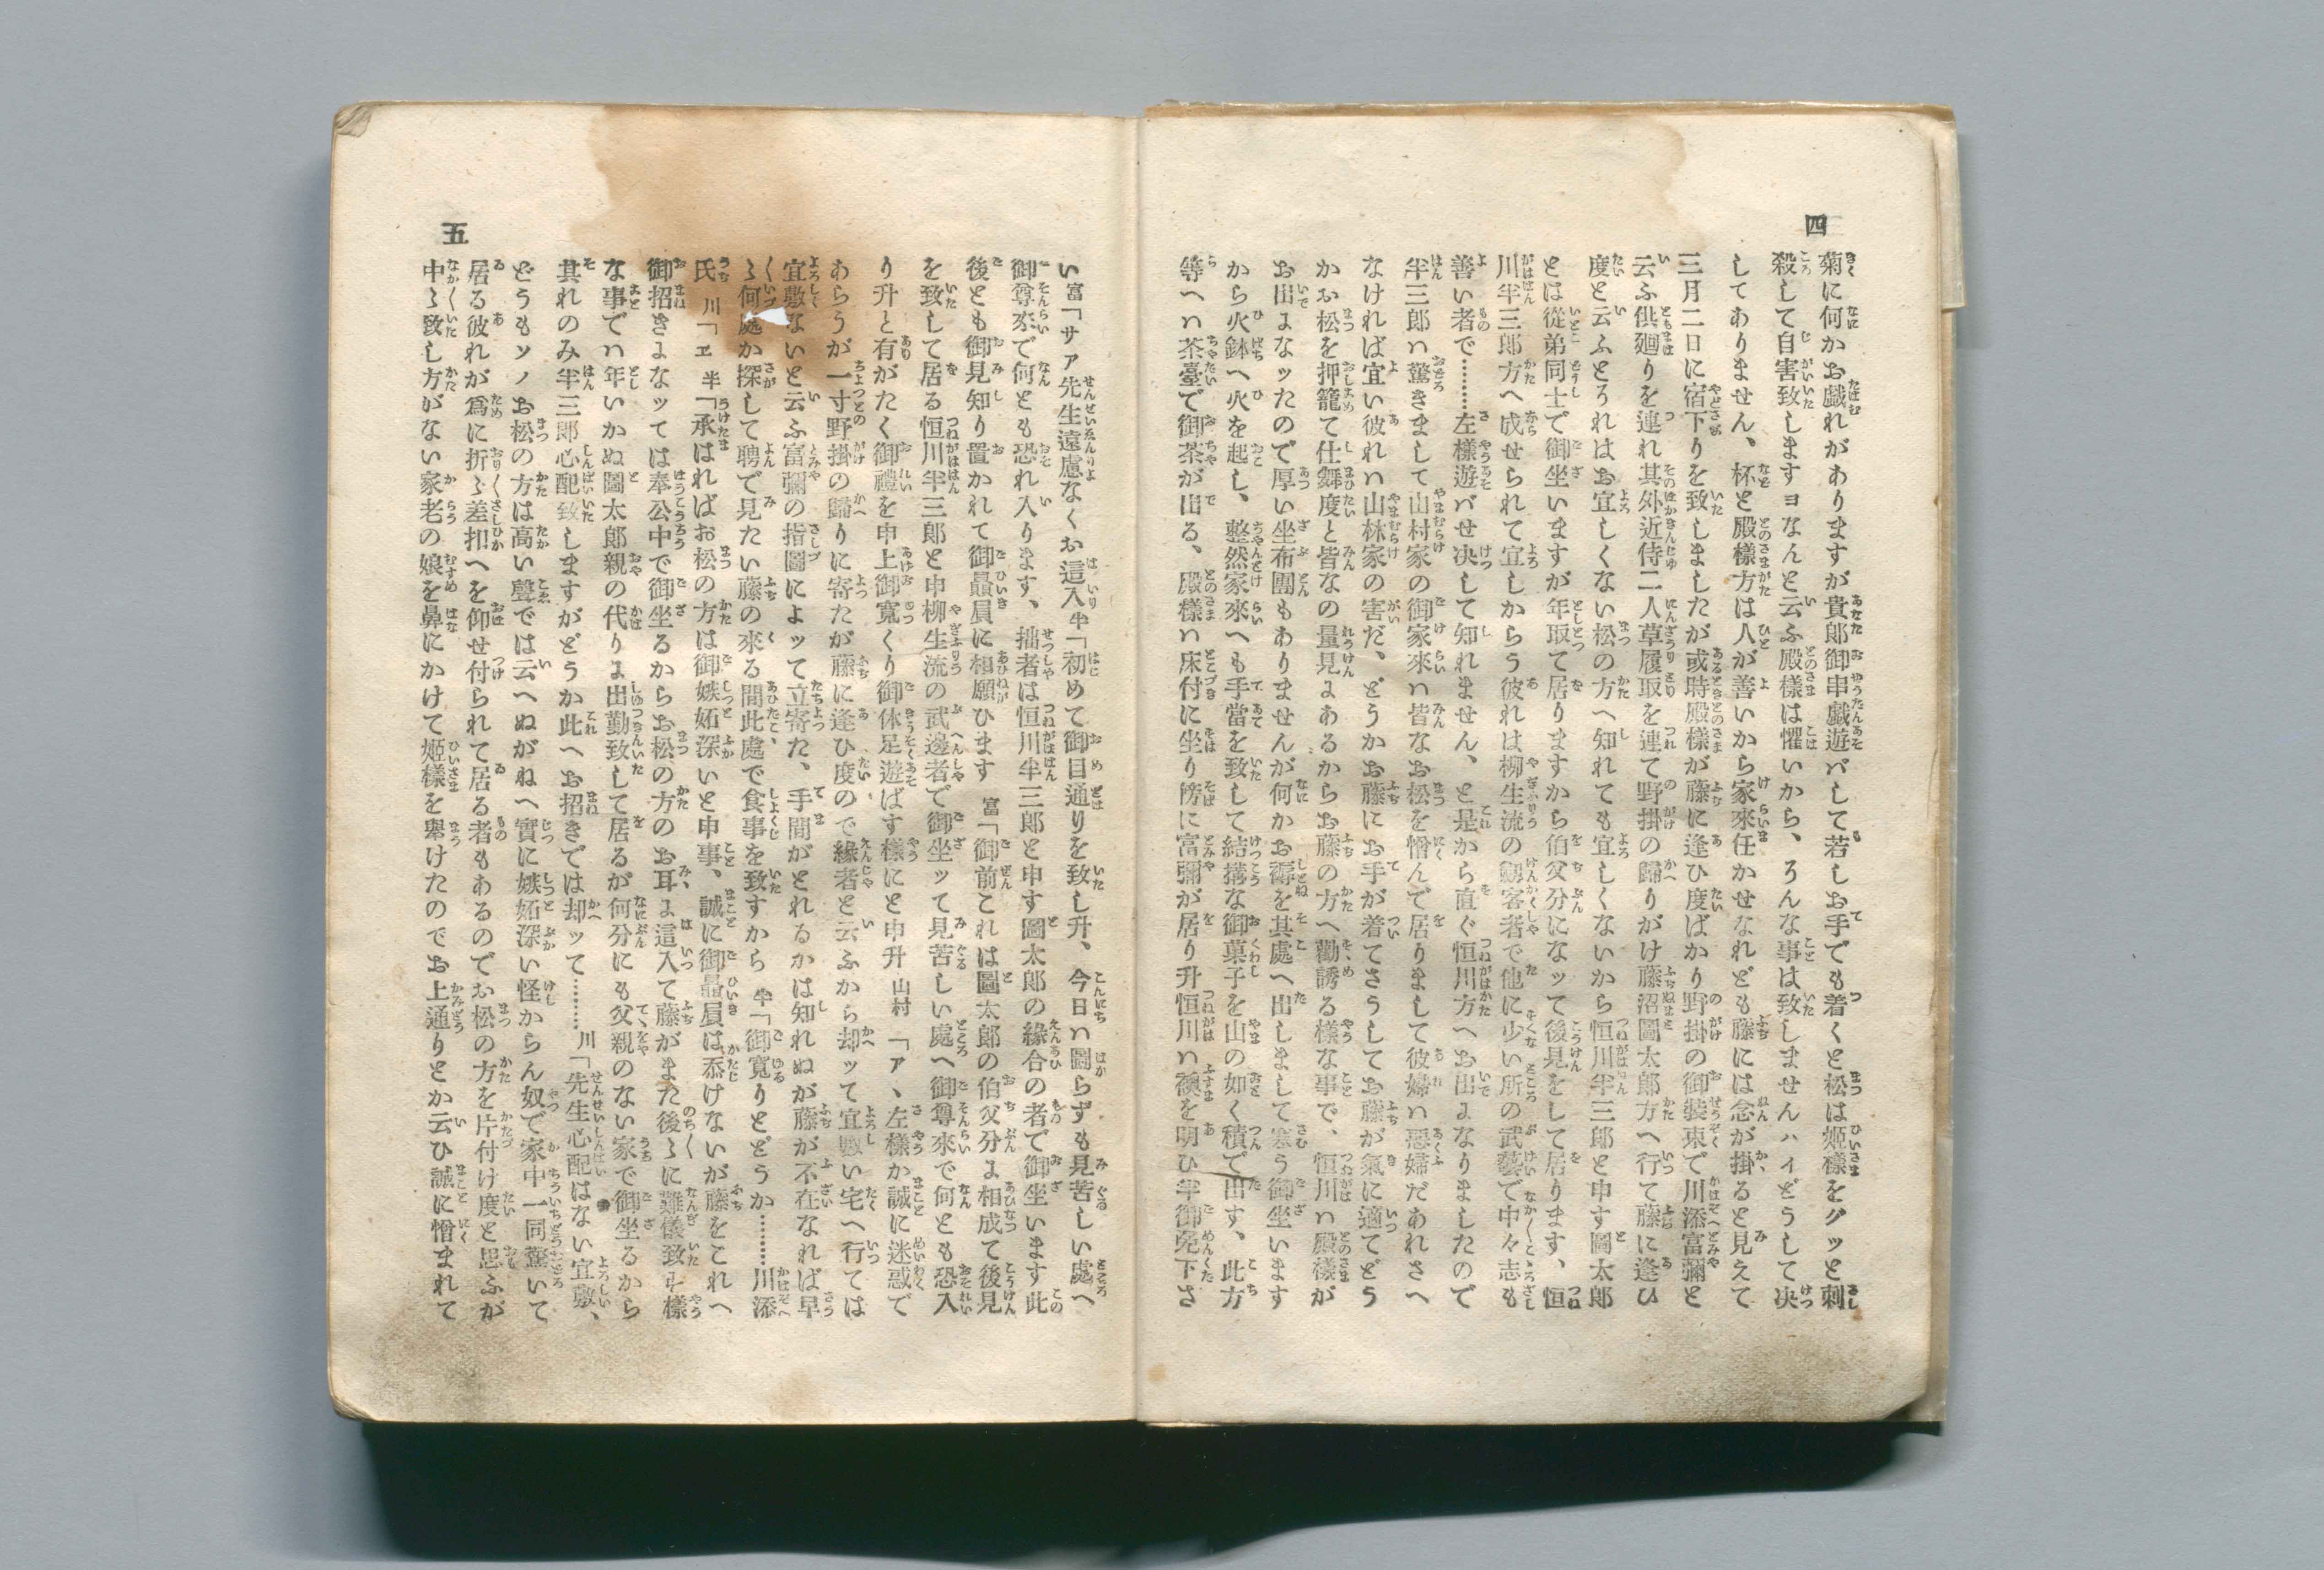 四
菊に何かお戯れがありますが貴郎御串戯遊バして若しお手でも着くと松は姫樣をグッと刺
殺して自害致しますヨなんと云ふ殿樣は懼いから、ろんな事は致しませんハイどうして决
してありません、杯と殿樣方は人が善いから家來任かせなれども藤には念が掛ると見えて
三月二日に宿下りを致しましたが或時殿樣が藤に逢ひ度ばかり野掛の御裝束で川添富彌と
云ふ供廻りを連れ其外近侍二人草履取を連て野掛の歸りがけ藤沼圖太郎方へ行て藤に逢ひ
度と云ふとろれはお宜しくない松の方へ知れても宜しくないから恒川半三郎と申す圖太郎
とは從弟同士で御坐いますが年取て居りますから伯父分になッて後見をして居ります、恒
川半三郎方へ成せられて宜しからう彼れは柳生流の劔客者で他に少い所の武藝で中々志も
善い者で………左樣遊バせ决して知れません、と是から直ぐ恒川方へお出よなりましたので
半三郎ハ驚きまして山村家の御家來ハ皆なお松を憎んで居りまして彼婦ハ惡婦だあれさへ
なければ宜い彼れハ山林家の害だ、どうかお藤にお手が着てさうしてお藤が氣に適てどう
かお松を押籠て仕舞度と皆なの量見よあるからお藤の方へ勸誘る樣な事で、恒川ハ殿樣が
お出よなッたので厚い坐布團もありませんが何かお褥を其處へ出しまして寒う御坐います
から火鉢へ火を起し、整然家來へも手當を致して結搆な御菓子を山の如く積で出す、此方
等へハ茶臺で御茶が出る、殿樣ハ床付に坐り傍に富彌が居り升恒川ハ襖を明ひ半御免下さ
五
い富「サア先生遠慮なくお這入半「初めて御目通りを致し升、今日ハ圖らずも見苦しい處へ
御尊來で何とも恐れ入ります、拙者は恒川半三郎と申す圖太郎の緣合の者で御坐います此
後とも御見知り置かれて御贔屓に相願ひます 富「御前これは圖太郎の伯父分よ相成て後見
を致して居る恒川半三郎と申柳生流の武邊者で御坐ッて見苦しい處へ御尊來で何とも恐入
り升と有がたく御禮を申上御寬くり御休足遊ばす樣にと申升 山村「アヽ左樣か誠に迷惑で
あらうが一寸野掛の歸りに寄たが藤に逢ひ度ので緣者と云ふから却ッて宜敷い宅へ行ては
宜敷ないと云ふ富彌の指圖によッて立寄た、手間がとれるかは知れぬが藤が不在なれば早
く何處か探して聘で見たい藤の來る間此處で食事を致すから 半「御寬りとどうか………川添
氏 川「ヱ 半「承はればお松の方は御嫉妬深いと申事、誠に御贔屓は忝けないが藤をこれへ
御招きよなッては奉公中で御坐るからお松の方のお耳よ這入て藤がまた後々に難儀致す樣
な事でハ年いかぬ圖太郎親の代りよ出勤致して居るが何分にも父親のない家で御坐るから
其れのみ半三郎心配致しますがどうか此へお招きでは却ッて………川「先生心配はない宜敷、
どうもソノお松の方は高い聲では云へぬがねへ實に嫉妬深い怪からん奴で家中一同驚いて
居る彼れが爲に折々差扣へを仰せ付られて居る者もあるのでお松の方を片付け度と思ふが
中々致し方がない家老の娘を鼻にかけて姬樣を卑けたのでお上通りとか云ひ誠に憎まれて